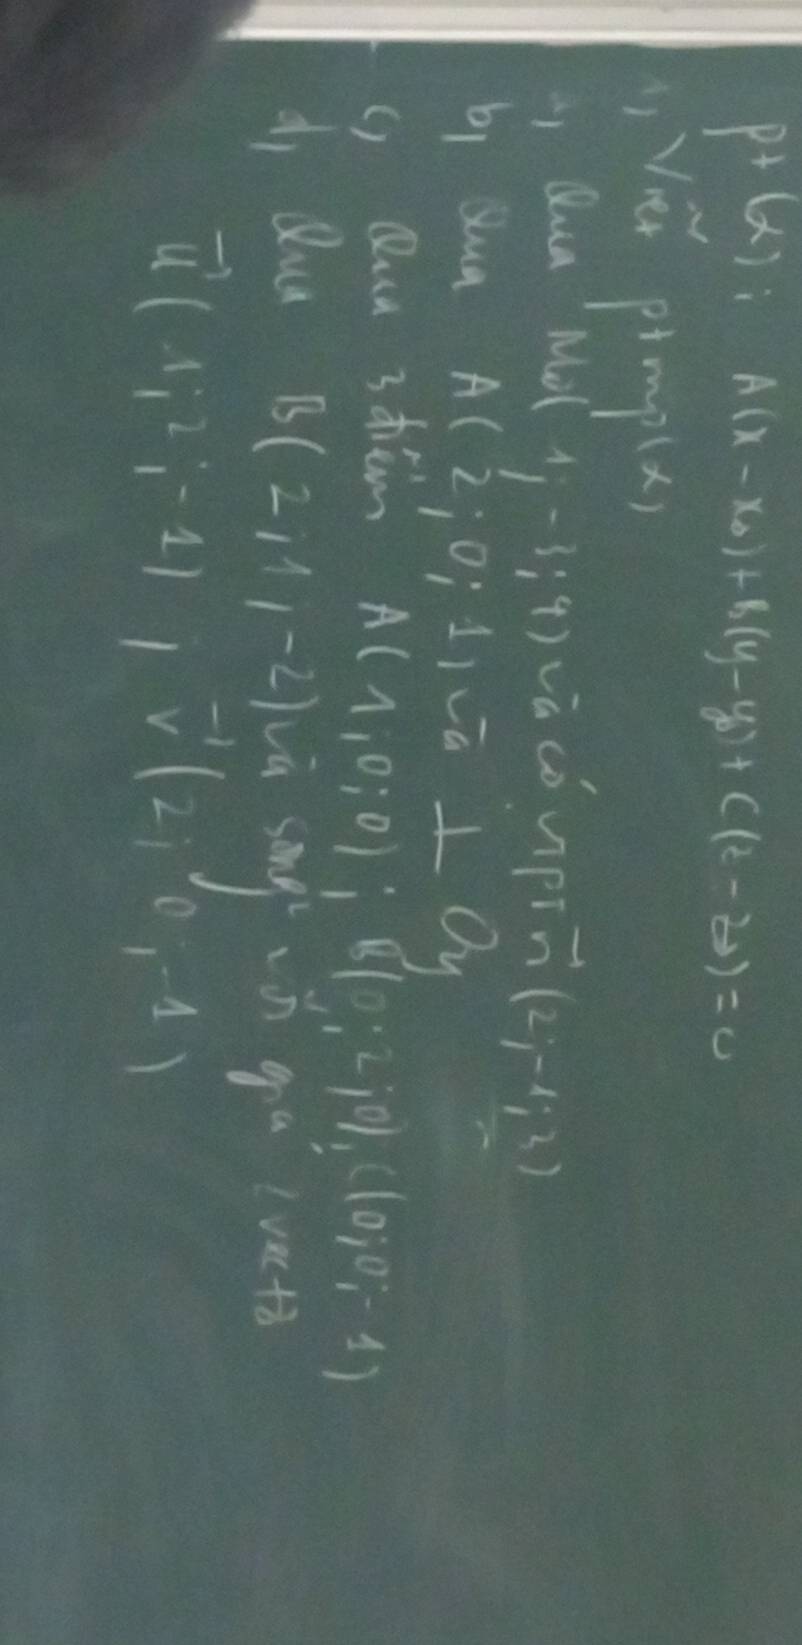 pt (α): A(x - x₀) + B(y - y₀) + C(z - z₀) = 0
1, Viết pt mp(α)
a, Qua M₀(1; -3; 4) và có VTPT n⃗ (2; -1; 3)
b, Qua A(2; 0; 1) và ⊥ Oy
c, Qua 3 điểm A(1; 0; 0); B(0; 2; 0); C(0; 0; -1)
d, Qua B(2; 1; -2) và song² với giá 2 vectơ
u⃗ (1; 2; -1), v⃗ (2; 0; -1)